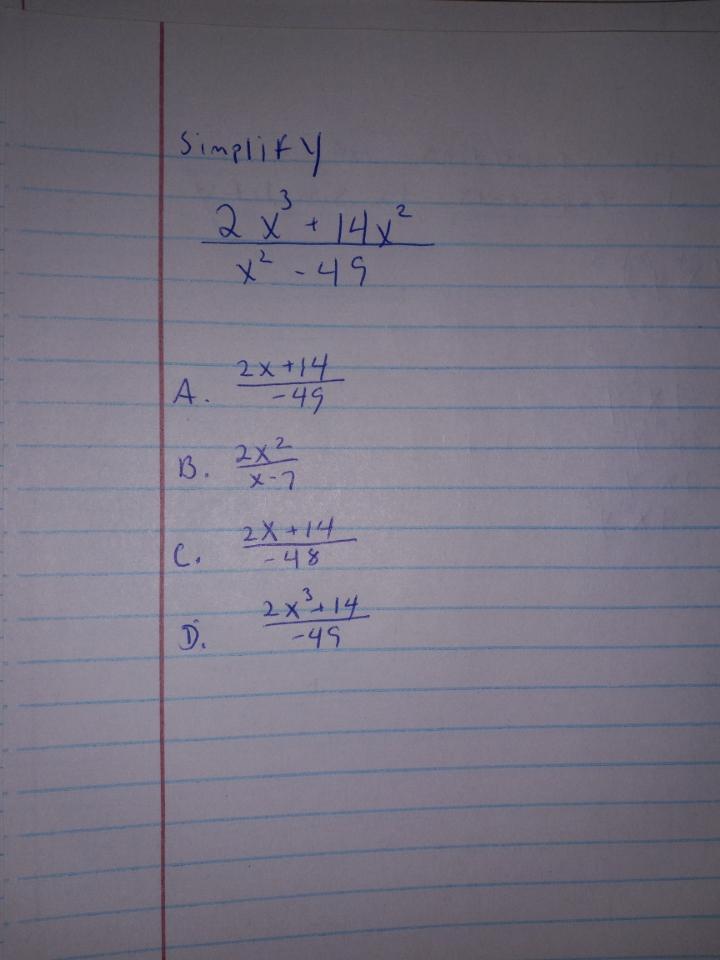 Simplify
2x³ + 14x²
x² - 49
A. 2x+14
-49
B. 2x²
x-7
C. 2x+14
-48
D. 2x³+14
-49